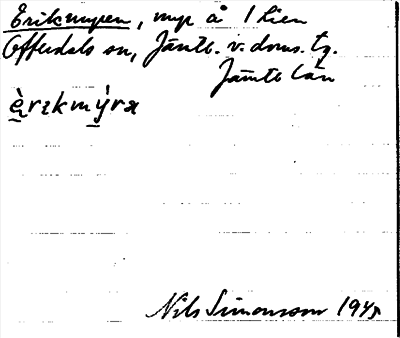 Erikmyren, myr å Lien
Offerdals sn, Jämtl. v. doms. tg.
Jämtl län
èrɩkmỳrɑ
Nils Simonsson 1945